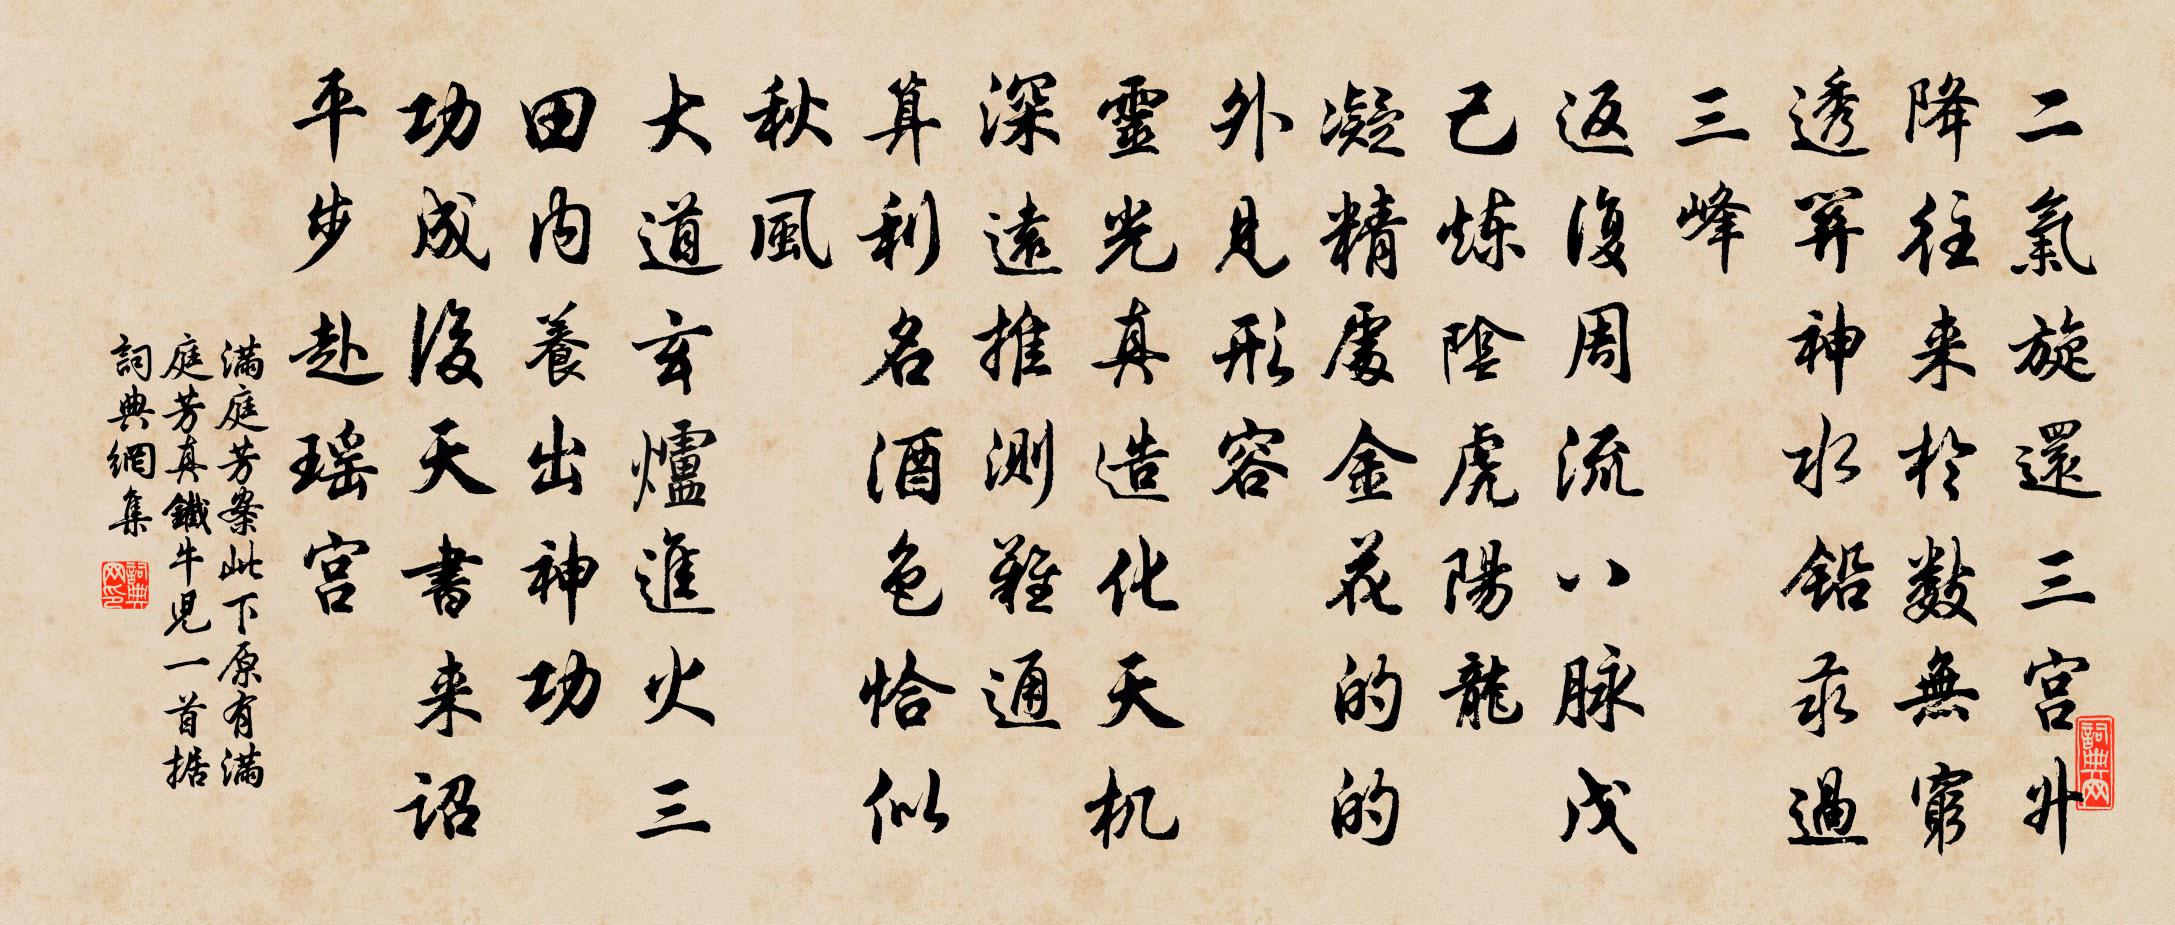 二氣旋還三宮升
降往来於数無窮
透開神水鉛汞過
三峰
返復周流八脉戊
己炼陰虎陽龍
凝精處金花的的
外見形容
靈光真造化天机
深遠推測難通
算利名酒色恰似
秋風
大道玄爐進火三
田内養出神功
功成後天書来詔
平步赴瑶宮
满庭芳案此下原有满
庭芳真鐵牛児一首据
詞典網集
詞典网
詞典网印